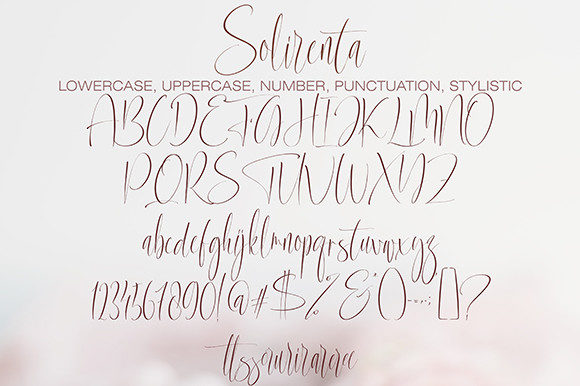 Solirenta
LOWERCASE, UPPERCASE, NUMBER, PUNCTUATION, STYLISTIC
ABCDEFGHIJKLMNO
PQRSTUVWXYZ
abcdefghijklmnopqrstuvwxyz
1234567890!@#$%&()-=:;[]?